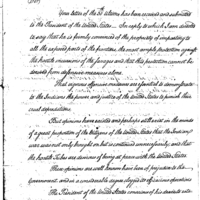 Your letter of the 20th ultimo has been received and submitted
to the President of the United States. In reply to which I am directed
to say that he is firmly convinced of the propriety of imparting to
all the exposed parts of the frontiers, the most ample protection against
the hostile incursions of the savages and that this protection cannot be
derived from defensive measures alone.
That even offensive measures are
to the the power and justice of the United States to punish their
cruel depredations.
That opinions have existed and perhaps still exist on the minds
of a great proportion of the citizens of the United States that the Indian
war was not only brought on but is continued unnecessarily, and that
the hostile Tribes are desirous of being at peace with the United States.
These opinions are well known to have been prejudicial to the
Government and in a considerable degree clogged its offensive operations.
The President of the United States conscious of his desire to